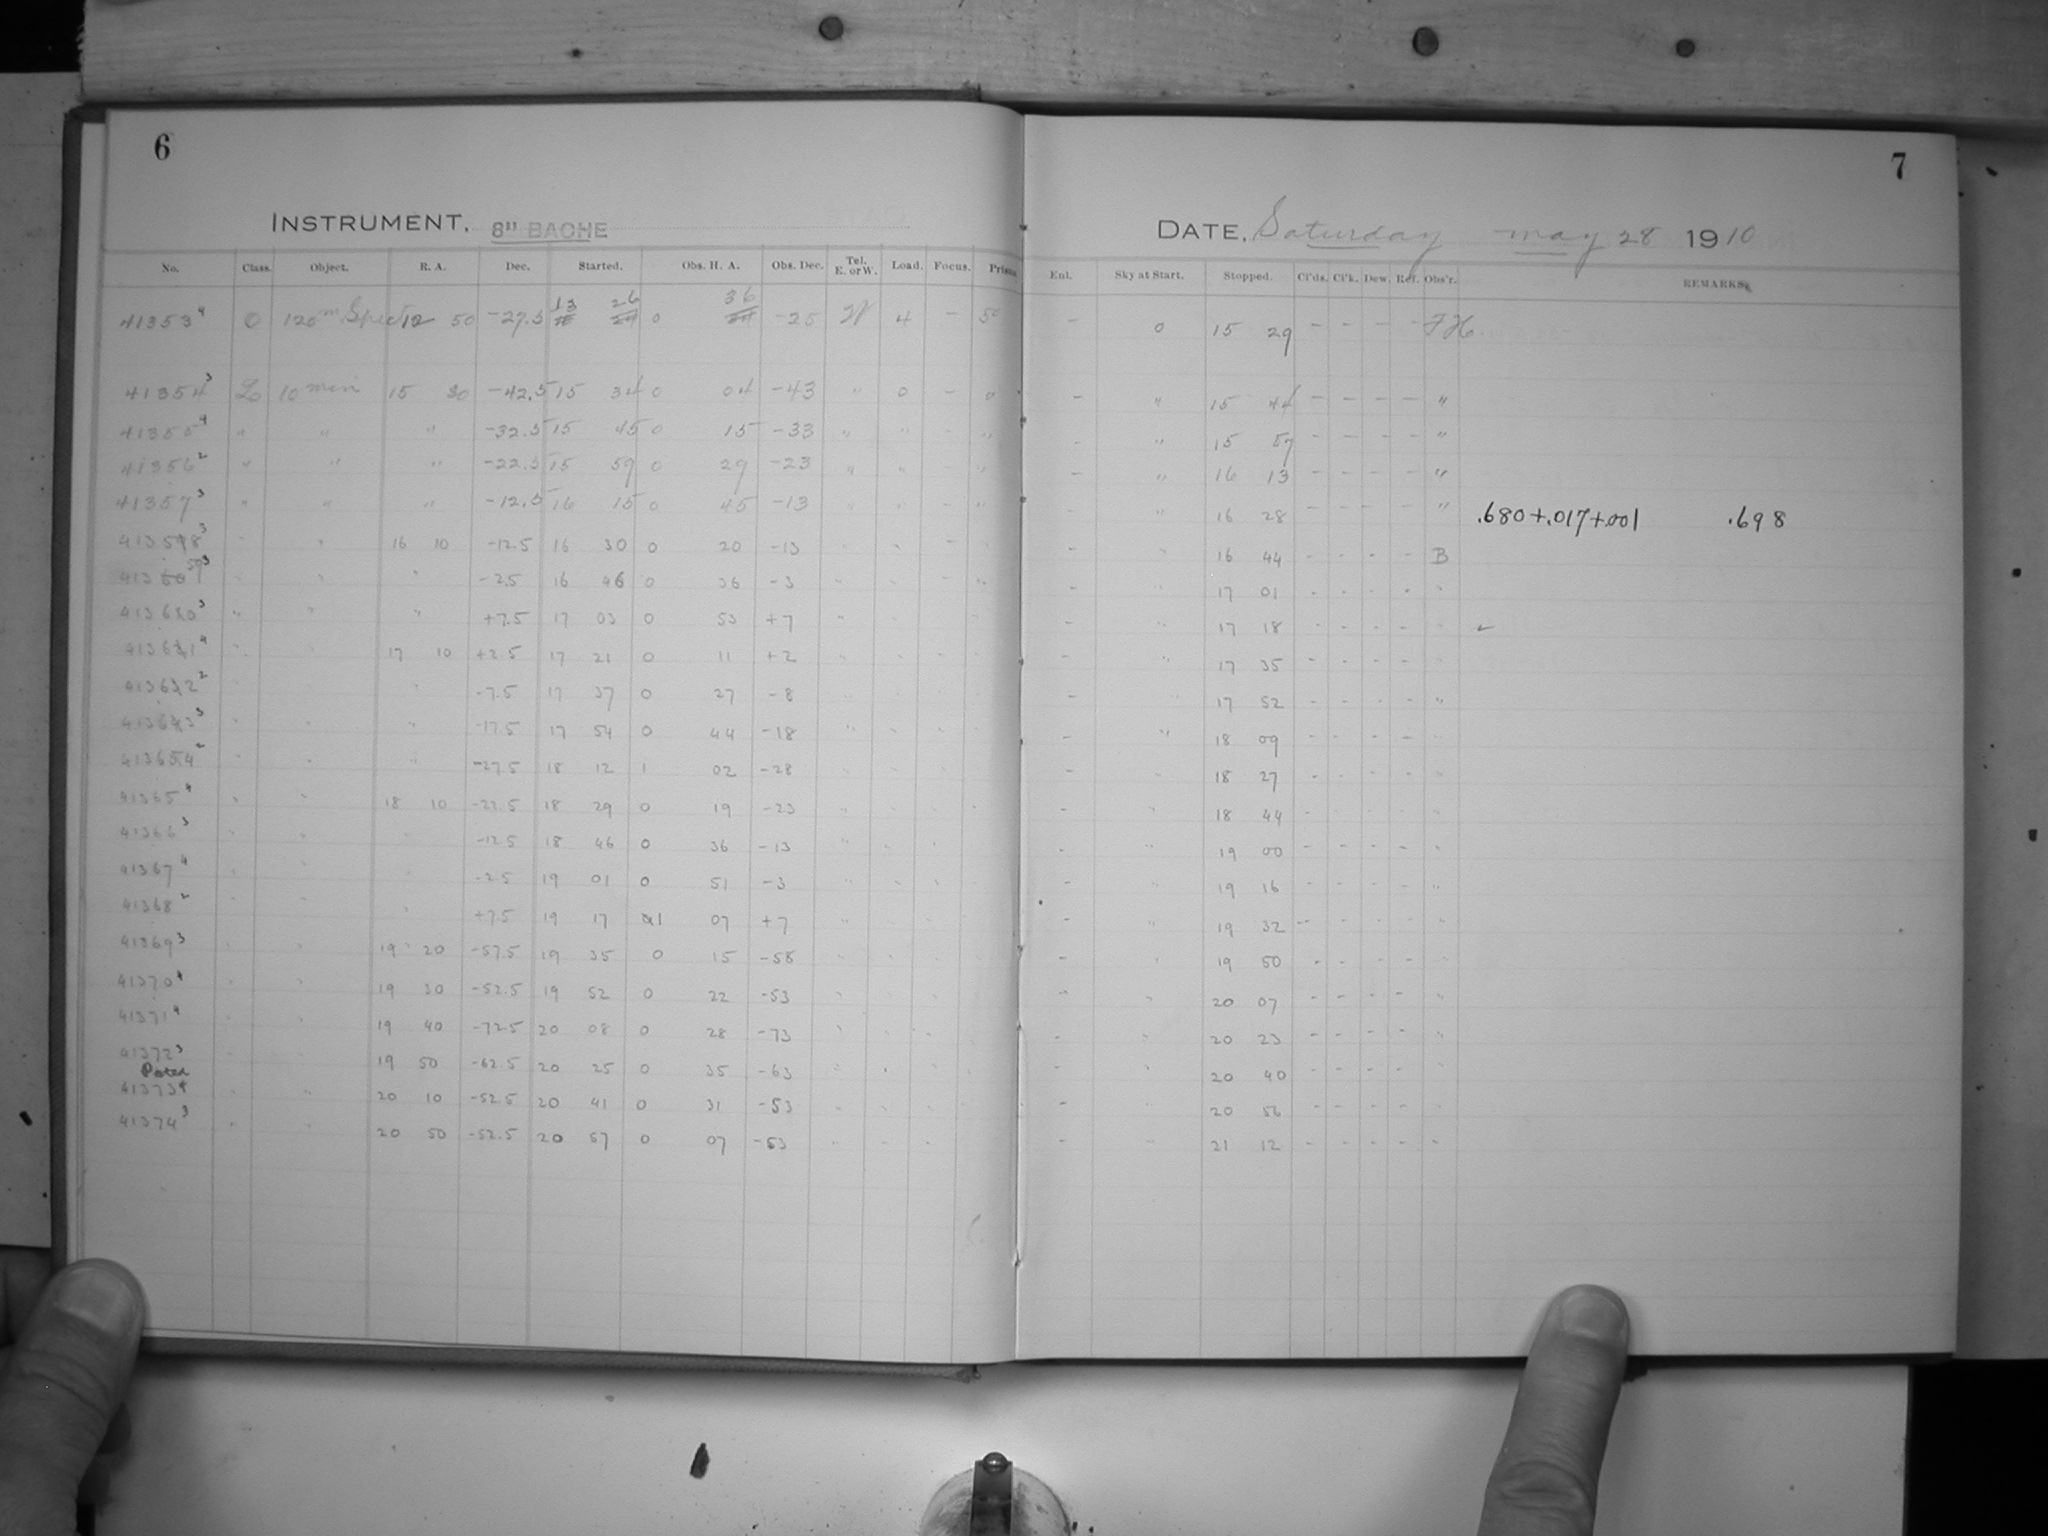 6
7
INSTRUMENT. 8" BACHE
DATE. Saturday May 28 1910
No. Class. Object. R. A. Dec. Started. Obs. H. A. Obs. Dec. Tel. E. or W. Load. Focus. Prism. Enl. Sky at Start. Stopped. Cl'ds. Cl'k. Dew. Ref. Obs'r. REMARKS.
13 26 36
41353 4 O 120 m Spec 12 50 -27.5 0 -25 W 4 - 5° - 0 15 29 - - - - FH.
41354 3 Lo 10 min 15 30 -42.5 15 34 0 04 -43 " 0 - 0 - " 15 44 - - - - "
41355 4 " " " -32.5 15 45 0 15 -33 " " - " - " 15 57 - - - - "
41356 2 " " " -22.5 15 59 0 29 -23 " " - " - " 16 13 - - - - "
41357 3 " " " -12.5 16 15 0 45 -13 " " - " - " 16 28 - - - - " .680+.017+.001 .698
41358 3 " " 16 10 -12.5 16 30 0 20 -13 " " - " - " 16 44 - - - - B
41359 3 " " " -2.5 16 46 0 36 -3 " " - " - " 17 01 - - - - "
41360 3 " " " +7.5 17 03 0 53 +7 " " - " - " 17 18 - - - - "
41361 4 " " 17 10 +2.5 17 21 0 11 +2 " " - " - " 17 35 - - - - "
41362 2 " " " -7.5 17 37 0 27 -8 " " - " - " 17 52 - - - - "
41363 3 " " " -17.5 17 54 0 44 -18 " " - " - " 18 09 - - - - "
41364 2 " " " -27.5 18 12 1 02 -28 " " - " - " 18 27 - - - - "
41365 4 " " 18 10 -22.5 18 29 0 19 -23 " " - " - " 18 44 - - - - "
41366 3 " " " -12.5 18 46 0 36 -13 " " - " - " 19 00 - - - - "
41367 4 " " " -2.5 19 01 0 51 -3 " " - " - " 19 16 - - - - "
41368 2 " " " +7.5 19 17 1 07 +7 " " - " - " 19 32 - - - - "
41369 3 " " 19 20 -57.5 19 35 0 15 -58 " " - " - " 19 50 - - - - "
41370 4 " " 19 30 -52.5 19 52 0 22 -53 " " - " - " 20 07 - - - - "
41371 4 " " 19 40 -72.5 20 08 0 28 -73 " " - " - " 20 23 - - - - "
41372 3 " " 19 50 -62.5 20 25 0 35 -63 " " - " - " 20 40 - - - - "
41373 4 " " 20 10 -52.5 20 41 0 31 -53 " " - " - " 20 56 - - - - "
41374 3 " " 20 50 -52.5 20 57 0 07 -53 " " - " - " 21 12 - - - - "